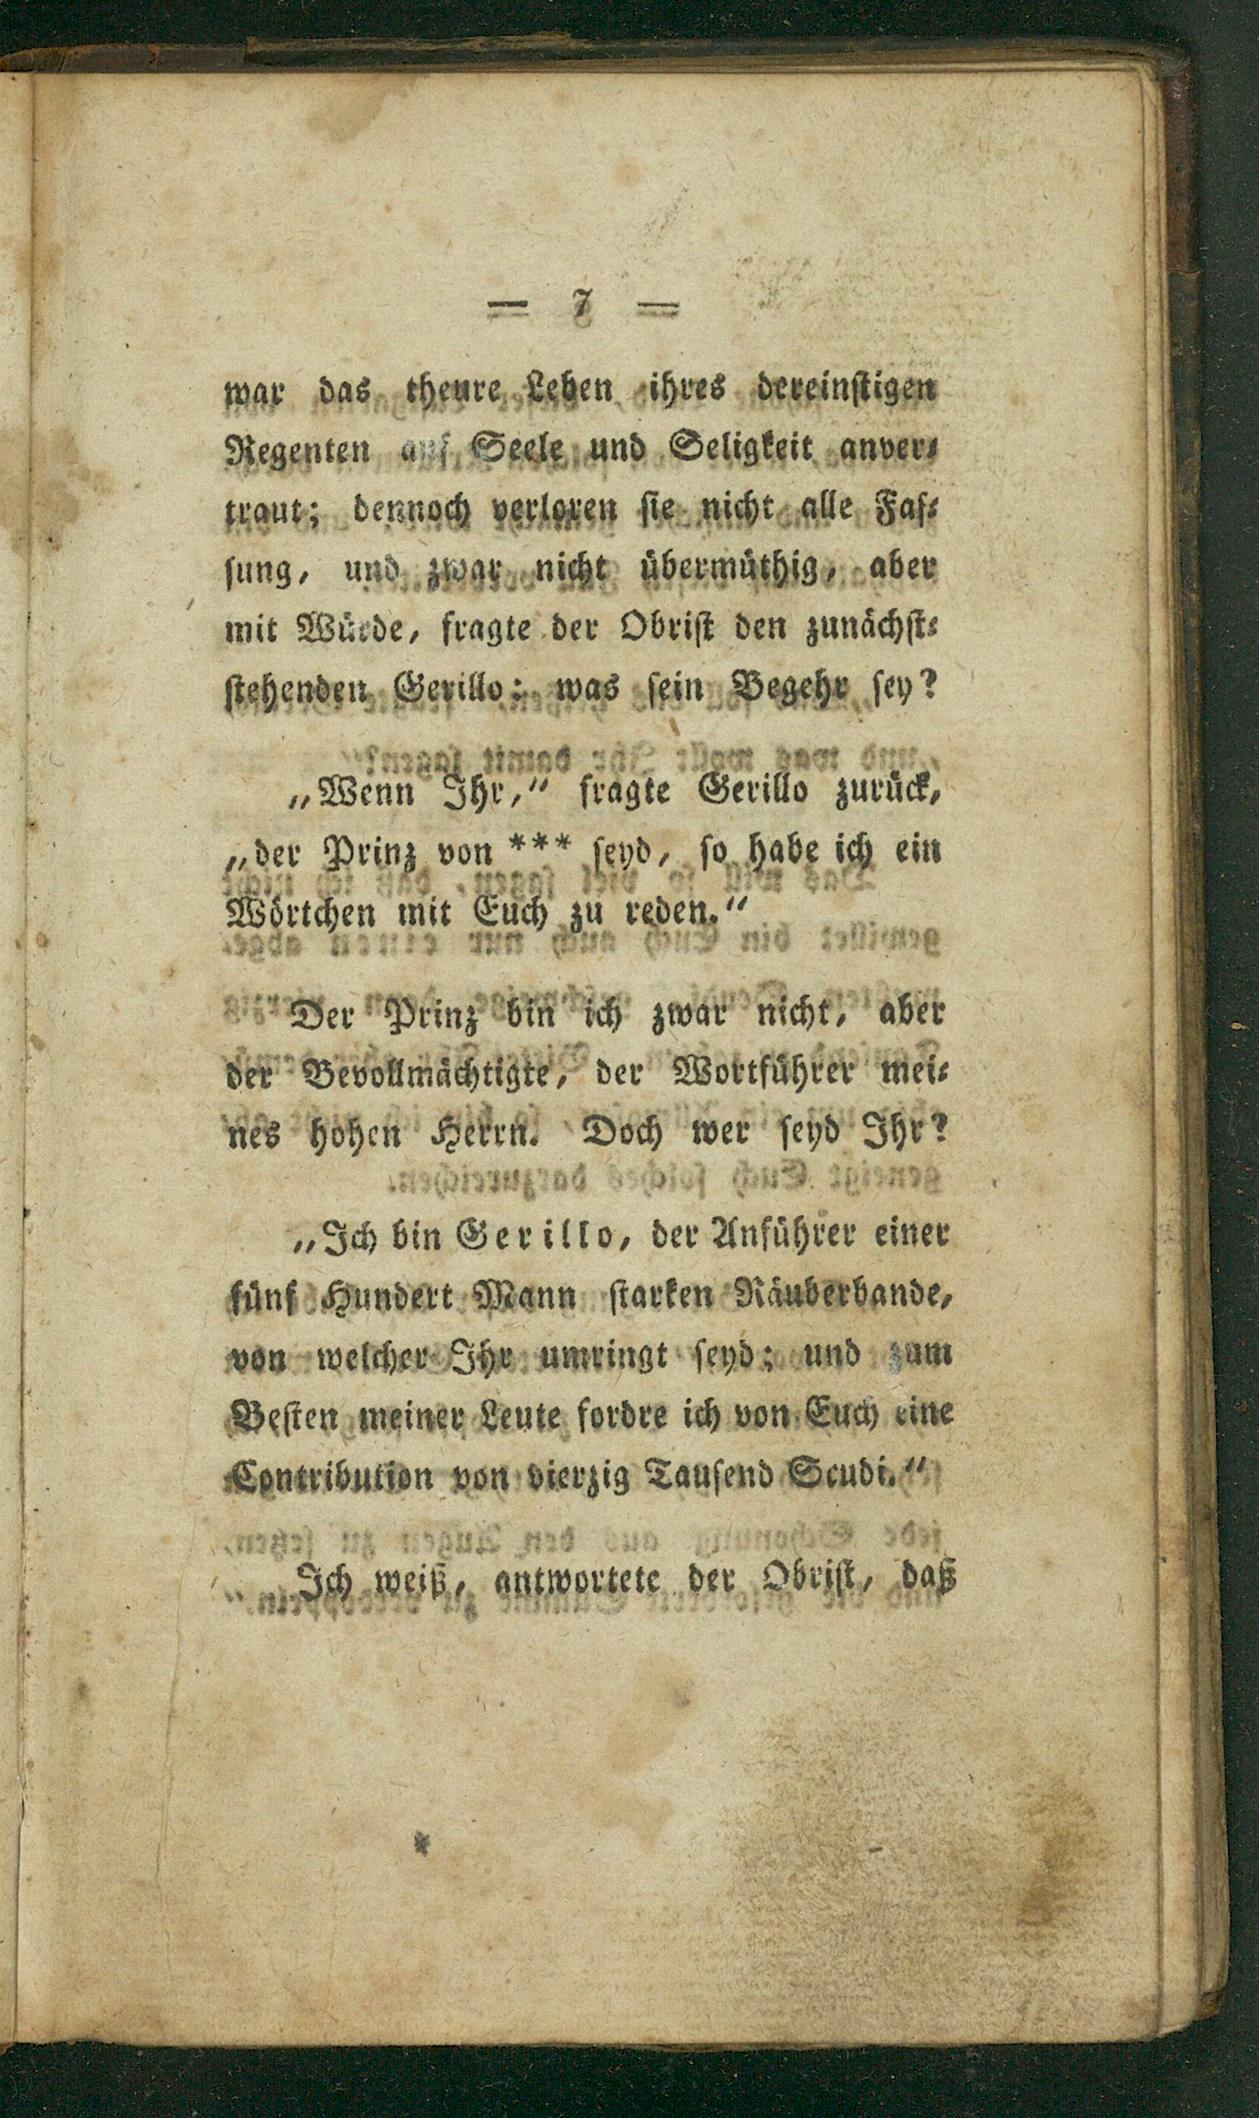 — 7 —
war das theure Leben ihres dereinstigen
Regenten auf Seele und Seligkeit anver⸗
traut; dennoch verloren sie nicht alle Fas⸗
sung, und zwar nicht übermüthig, aber
mit Würde, fragte der Obrist den zunächst⸗
stehenden Gerillo: was sein Begehr sey?
„Wenn Ihr,“ fragte Gerillo zurück,
„der Prinz von *** seyd, so habe ich ein
Wörtchen mit Euch zu reden.“
Der Prinz bin ich zwar nicht, aber
der Bevollmächtigte, der Wortführer mei⸗
nes hohen Herrn. Doch wer seyd Ihr?
„Ich bin Gerillo, der Anführer einer
fünf Hundert Mann starken Räuberbande,
von welcher Ihr umringt seyd; und zum
Besten meiner Leute fordre ich von Euch eine
Contribution von vierzig Tausend Scudi.“
Ich weiß, antwortete der Obrist, daß